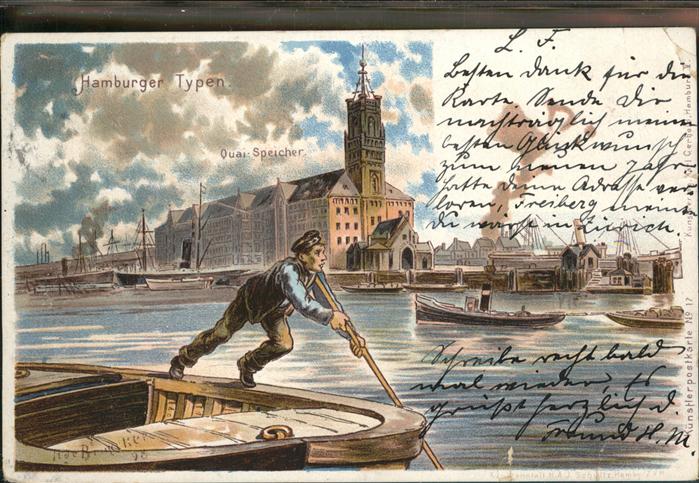 Hamburger Typen.
Quai-Speicher.
L. F.
Besten Dank für die
Karte, Sende Dir
nachträglich meinen
besten Glückwunsch
zum neuen Jahr
hatte deine Adresse ver
loren, Freiberg meinte
Du wärst in Zürich.
Schreibe recht bald
mal wieder, Es
grüßt herzlich d.
Freund H. M.
Künstlerpostkarte No 17